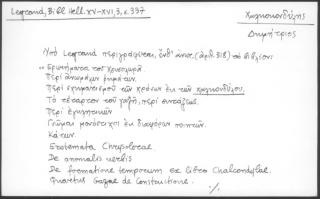 Legrand, Bibl. Hell. XV-XVI, 3, σ. 337
Χαλκοκονδύλης
Δημήτριος
Υπό Legrand περιγράφεται, ἐνθ' ἀνωτ. (ἀρ. 318) τό βιβλίον:
"Ερωτήματα του Χρυσολωρᾶ
Περί ἀνωμάλων ῥημάτων.
Περί σχηματισμοῦ τῶν χρόνων ἐκ τῶν Χαλκονδύλου.
Τό τέταρτον τοῦ Γαζῆ, περί συντάξεως.
Περί ἐγκλητικῶν
Γνῶμαι μονόστιχοι ἐκ διαφόρων ποιητῶν.
Κάτων.
Erotemata Chrysolorae.
De anomalis verbis
De formatione temporum ex libro Chalcondylae.
Quartus Gazae de Constructione.